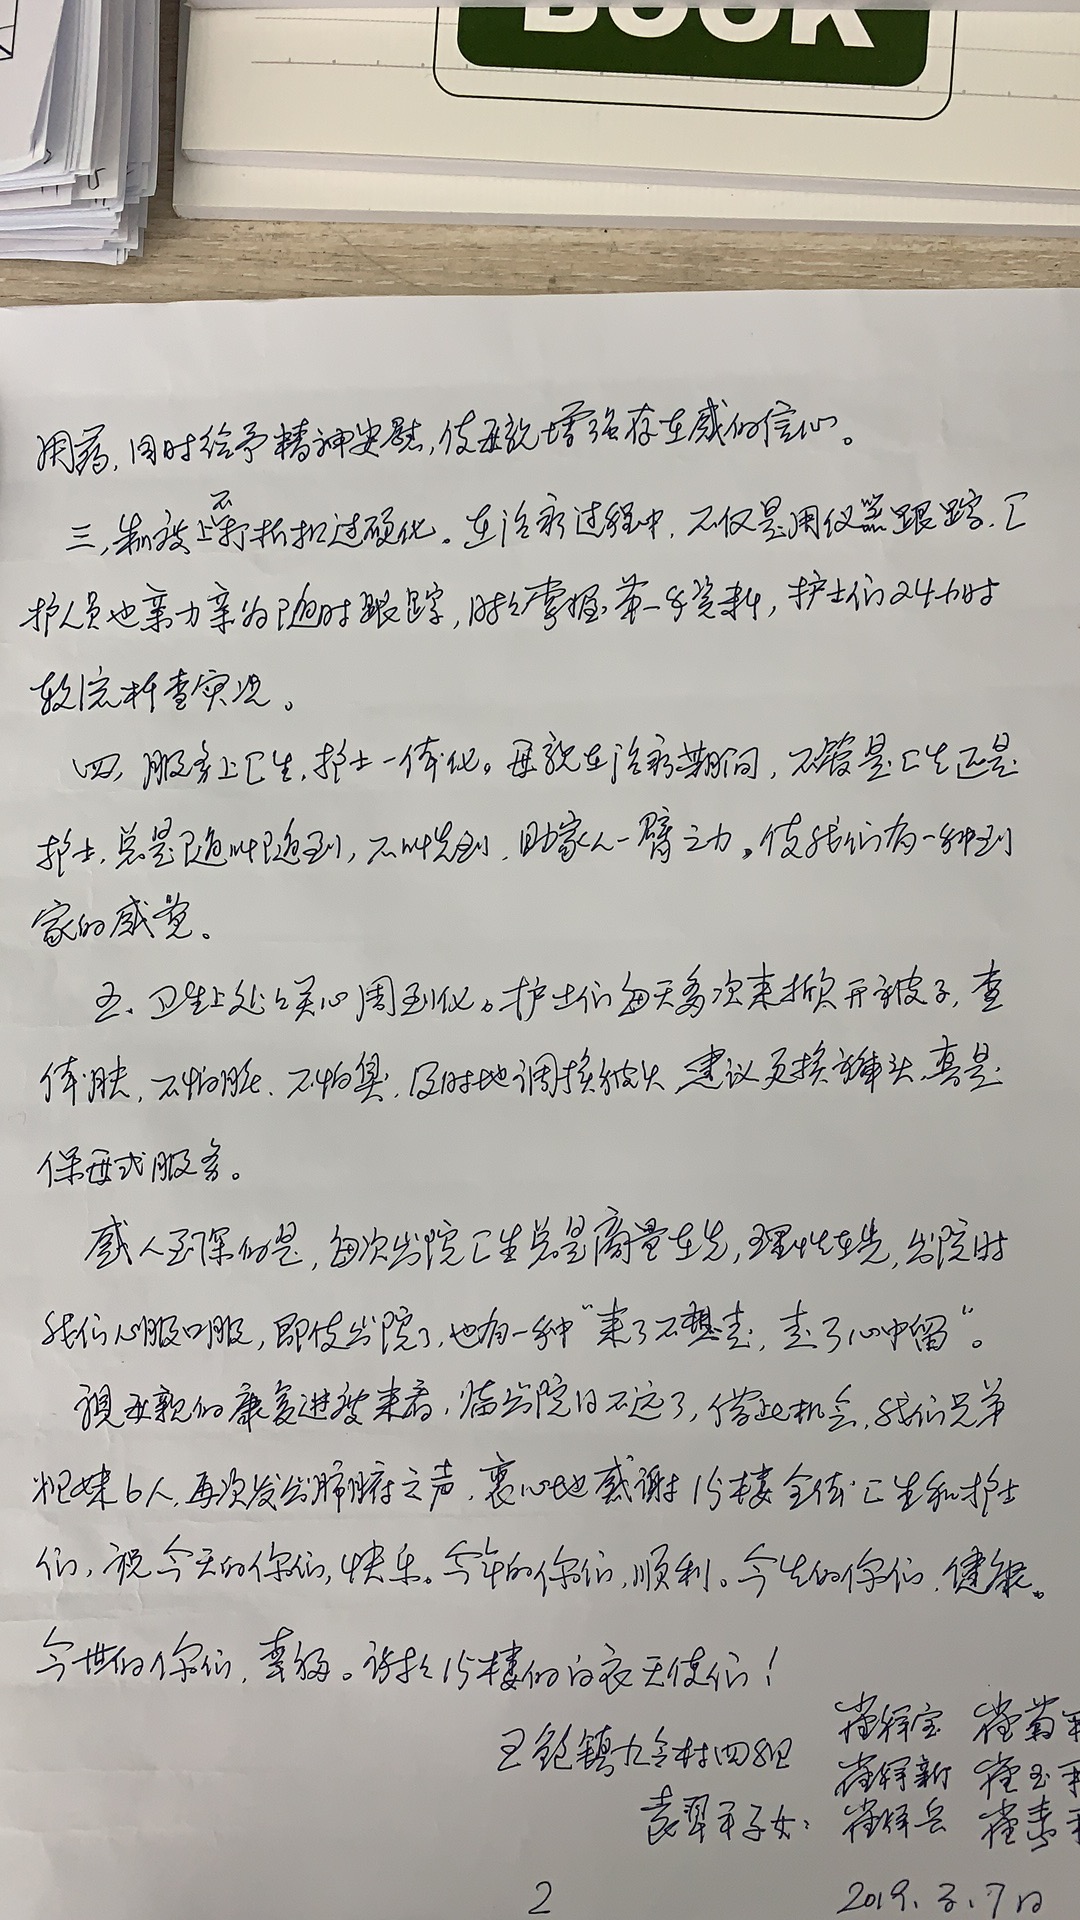 BOOK
用药,同时给予精神安慰,使母亲增强存在感的信心。
三、制度上不打折扣过硬化。在治疗过程中,不仅是用仪器跟踪,医
护人员也亲力亲为随时跟踪,时刻掌握第一手资料,护士们24小时
来查实况。
四、服务上医生,护士一体化。母亲在治疗期间,不管是医生还是
护士,总是随叫随到,不叫先到,助家人一臂之力。使我们有一种到
家的感觉。
五、卫生上处处关心周到化。护士们每天多次来掀开被子,查
体肤,不怕脏、不怕臭,及时地调换,建议更换,真是
保母式服务。
感人至深的是,每次出院医生总是商量在先,理性在先,出院时
我们心服口服,即使出院了,也有一种“来了不想走,走了心中留”。
视母亲的康复进度来看,临出院日不远了,借此机会,我们兄弟
姐妹6人,再次发出肺腑之声,衷心地感谢15楼全体医生和护士
们,祝今天的你们,快乐。今年的你们,顺利。今生的你们,健康。
今世的你们,幸福。谢谢15楼的白衣天使们!
王鲍镇九合村四组
子女:
2
2019.3.7日